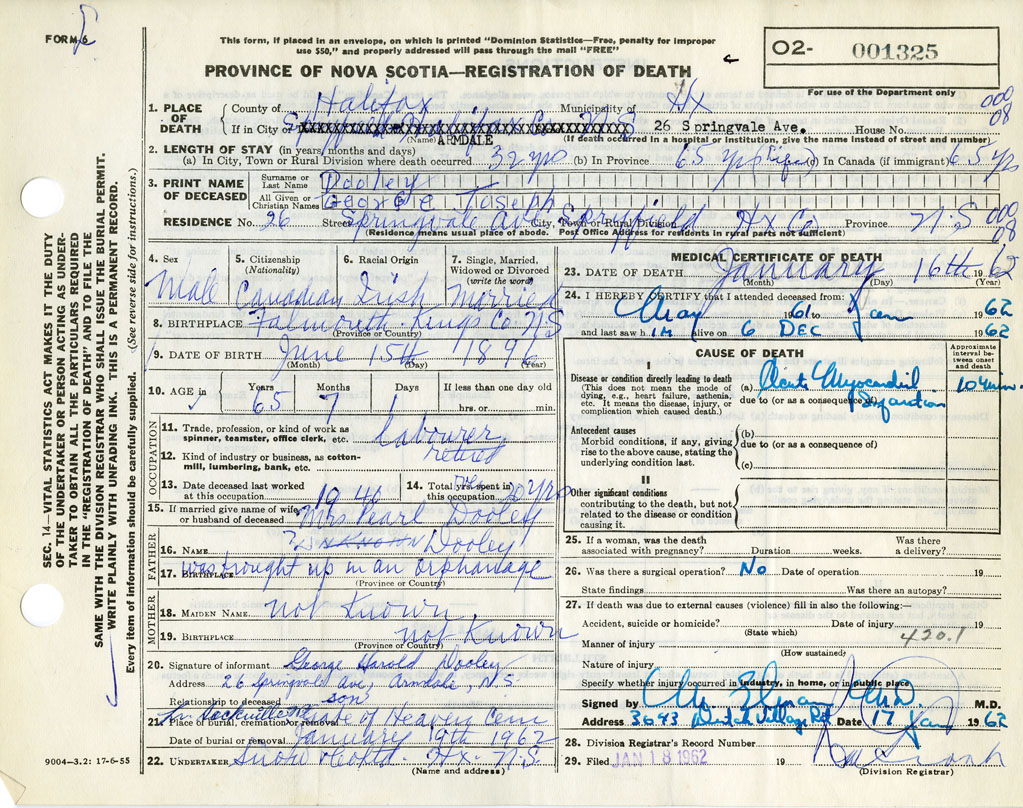 FORM 6
This form, if placed in an envelope, on which is printed "Dominion Statistics—Free, penalty for improper
use $50," and properly addressed will pass through the mail "FREE"
PROVINCE OF NOVA SCOTIA—REGISTRATION OF DEATH
O2- 001325
For use of the Department only
000
08
SEC. 14—VITAL STATISTICS ACT MAKES IT THE DUTY
OF THE UNDERTAKER OR PERSON ACTING AS UNDER-
TAKER TO OBTAIN ALL THE PARTICULARS REQUIRED
IN THE "REGISTRATION OF DEATH" AND TO FILE THE
SAME WITH THE DIVISION REGISTRAR WHO SHALL ISSUE THE BURIAL PERMIT.
WRITE PLAINLY WITH UNFADING INK. THIS IS A PERMANENT RECORD.
Every item of Information should be carefully supplied. (See reverse side for instructions.)
1. PLACE OF DEATH County of Halifax Municipality of Hx
If in City or 26 Springvale Ave. House No.
(Name) ARMDALE (If death occurred in a hospital or institution, give the name instead of street and number)
2. LENGTH OF STAY (in years, months and days)
(a) In City, Town or Rural Division where death occurred 32 yrs (b) In Province 65 yrs (life) (c) In Canada (if immigrant) 65 yrs
3. PRINT NAME OF DECEASED Surname or Last Name Dooley
All Given or Christian Names George Joseph
RESIDENCE No. 26 Street Springvale Ave City, Town or Rural Division Spryfield Hx Co Province N.S 000
08
(Residence means usual place of abode. Post Office Address for residents in rural parts not sufficient)
4. Sex 5. Citizenship (Nationality) 6. Racial Origin 7. Single, Married, Widowed or Divorced (write the word)
Male Canadian Irish Married
8. BIRTHPLACE Falmouth Kings Co N.S
(Province or Country)
9. DATE OF BIRTH June 15th 1896
(Month) (Day) (Year)
10. AGE in Years Months Days If less than one day old
65 7 1 hrs. or min.
OCCUPATION
11. Trade, profession, or kind of work as
spinner, teamster, office clerk, etc. labourer
12. Kind of industry or business, as cotton-
mill, lumbering, bank, etc. retired
13. Date deceased last worked
at this occupation 1946
14. Total yrs. spent in
this occupation 20 yrs
15. If married give name of wife
or husband of deceased Mrs Pearl Dooley
FATHER
16. NAME ? unknown Dooley
17. BIRTHPLACE was brought up in an orphanage
(Province or Country)
MOTHER
18. MAIDEN NAME not Known
19. BIRTHPLACE not Known
(Province or Country)
20. Signature of informant George Harold Dooley
Address 26 Springvale Ave, Armdale, N.S.
Relationship to deceased son
21. Place of burial, cremation or removal Sackville Gate of Heaven Cem
Date of burial or removal January 19th 1962
22. UNDERTAKER Snow Hx. N.S.
(Name and address)
9004—3.2: 17-6-55
MEDICAL CERTIFICATE OF DEATH
23. DATE OF DEATH January 16th 1962
(Month) (Day) (Year)
24. I HEREBY CERTIFY that I attended deceased from:
May 1961 to Jan 1962
and last saw him alive on 6 DEC 1962
CAUSE OF DEATH
Approximate interval between onset and death
I
Disease or condition directly leading to death
(This does not mean the mode of
dying, e.g., heart failure, asthenia,
etc. It means the disease, injury, or
complication which caused death.)
(a) Acute Myocardial Infarction 10 min.
due to (or as a consequence of)
Antecedent causes
Morbid conditions, if any, giving
rise to the above cause, stating the
underlying condition last.
(b)
due to (or as a consequence of)
(c)
II
Other significant conditions
contributing to the death, but not
related to the disease or condition
causing it.
25. If a woman, was the death Was there
associated with pregnancy? Duration weeks. a delivery?
26. Was there a surgical operation? No Date of operation 19
State findings Was there an autopsy?
27. If death was due to external causes (violence) fill in also the following:—
Accident, suicide or homicide? Date of injury 19
(State which) 420.1
Manner of injury
(How sustained)
Nature of injury
Specify whether injury occurred in industry, in home, or in public place
Signed by M.D.
Address 3643 Dutch Village Rd. Date 17 Jan 1962
28. Division Registrar's Record Number
29. Filed JAN 18 1962
(Division Registrar)